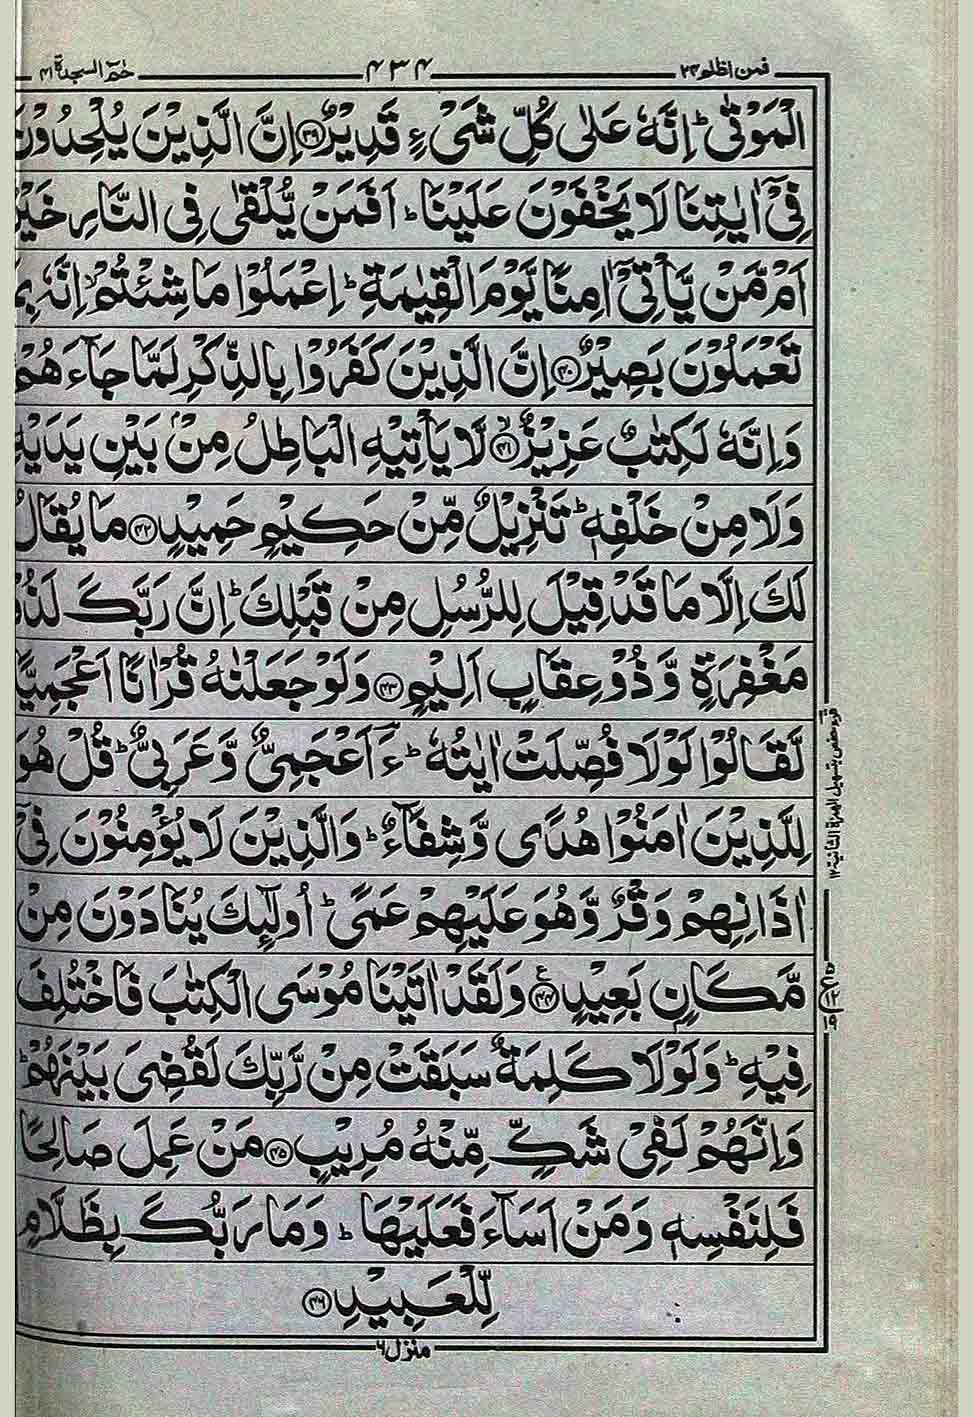 فمن اظلم ۲۴ ۴۳۴ حٰمٓ السجدۃ ۴۱
الْمَوْتٰىؕ اِنَّهٗ عَلٰى كُلِّ شَیْءٍ قَدِیْرٌ ﴿۳۹﴾ اِنَّ الَّذِیْنَ یُلْحِدُوْنَ
فِیْۤ اٰیٰتِنَا لَا یَخْفَوْنَ عَلَیْنَاؕ اَفَمَنْ یُّلْقٰى فِی النَّارِ خَیْرٌ
اَمْ مَّنْ یَّاْتِیْۤ اٰمِنًا یَّوْمَ الْقِیٰمَةِؕ اِعْمَلُوْا مَا شِئْتُمْۙ اِنَّهٗ بِمَا
تَعْمَلُوْنَ بَصِیْرٌ ﴿۴۰﴾ اِنَّ الَّذِیْنَ كَفَرُوْا بِالذِّكْرِ لَمَّا جَآءَهُمْ
وَاِنَّهٗ لَكِتٰبٌ عَزِیْزٌ ﴿۴۱﴾ۙ لَّا یَاْتِیْهِ الْبَاطِلُ مِنْۢ بَیْنِ یَدَیْهِ
وَلَا مِنْ خَلْفِهٖؕ تَنْزِیْلٌ مِّنْ حَكِیْمٍ حَمِیْدٍ ﴿۴۲﴾ مَا یُقَالُ
لَكَ اِلَّا مَا قَدْ قِیْلَ لِلرُّسُلِ مِنْ قَبْلِكَؕ اِنَّ رَبَّكَ لَذُوْ
مَغْفِرَةٍ وَّذُوْ عِقَابٍ اَلِیْمٍ ﴿۴۳﴾ وَلَوْ جَعَلْنٰهُ قُرْاٰنًا اَعْجَمِیًّا
لَّقَالُوْا لَوْلَا فُصِّلَتْ اٰیٰتُهٗؕ ءَؔاَعْجَمِیٌّ وَّعَرَبِیٌّؕ قُلْ هُوَ
لِلَّذِیْنَ اٰمَنُوْا هُدًى وَّشِفَآءٌؕ وَالَّذِیْنَ لَا یُؤْمِنُوْنَ فِیْۤ
اٰذَانِهِمْ وَقْرٌ وَّهُوَ عَلَیْهِمْ عَمًىؕ اُولٰٓىِٕكَ یُنَادَوْنَ مِنْ
مَّكَانٍۭ بَعِیْدٍ ﴿۴۴﴾ع وَلَقَدْ اٰتَیْنَا مُوْسَى الْكِتٰبَ فَاخْتُلِفَ
فِیْهِؕ وَلَوْلَا كَلِمَةٌ سَبَقَتْ مِنْ رَّبِّكَ لَقُضِیَ بَیْنَهُمْؕ
وَاِنَّهُمْ لَفِیْ شَكٍّ مِّنْهُ مُرِیْبٍ ﴿۴۵﴾ مَنْ عَمِلَ صَالِحًا
فَلِنَفْسِهٖ وَمَنْ اَسَآءَ فَعَلَیْهَاؕ وَمَا رَبُّكَ بِظَلَّامٍ
لِّلْعَبِیْدِ ﴿۴۶﴾
منزل ۶